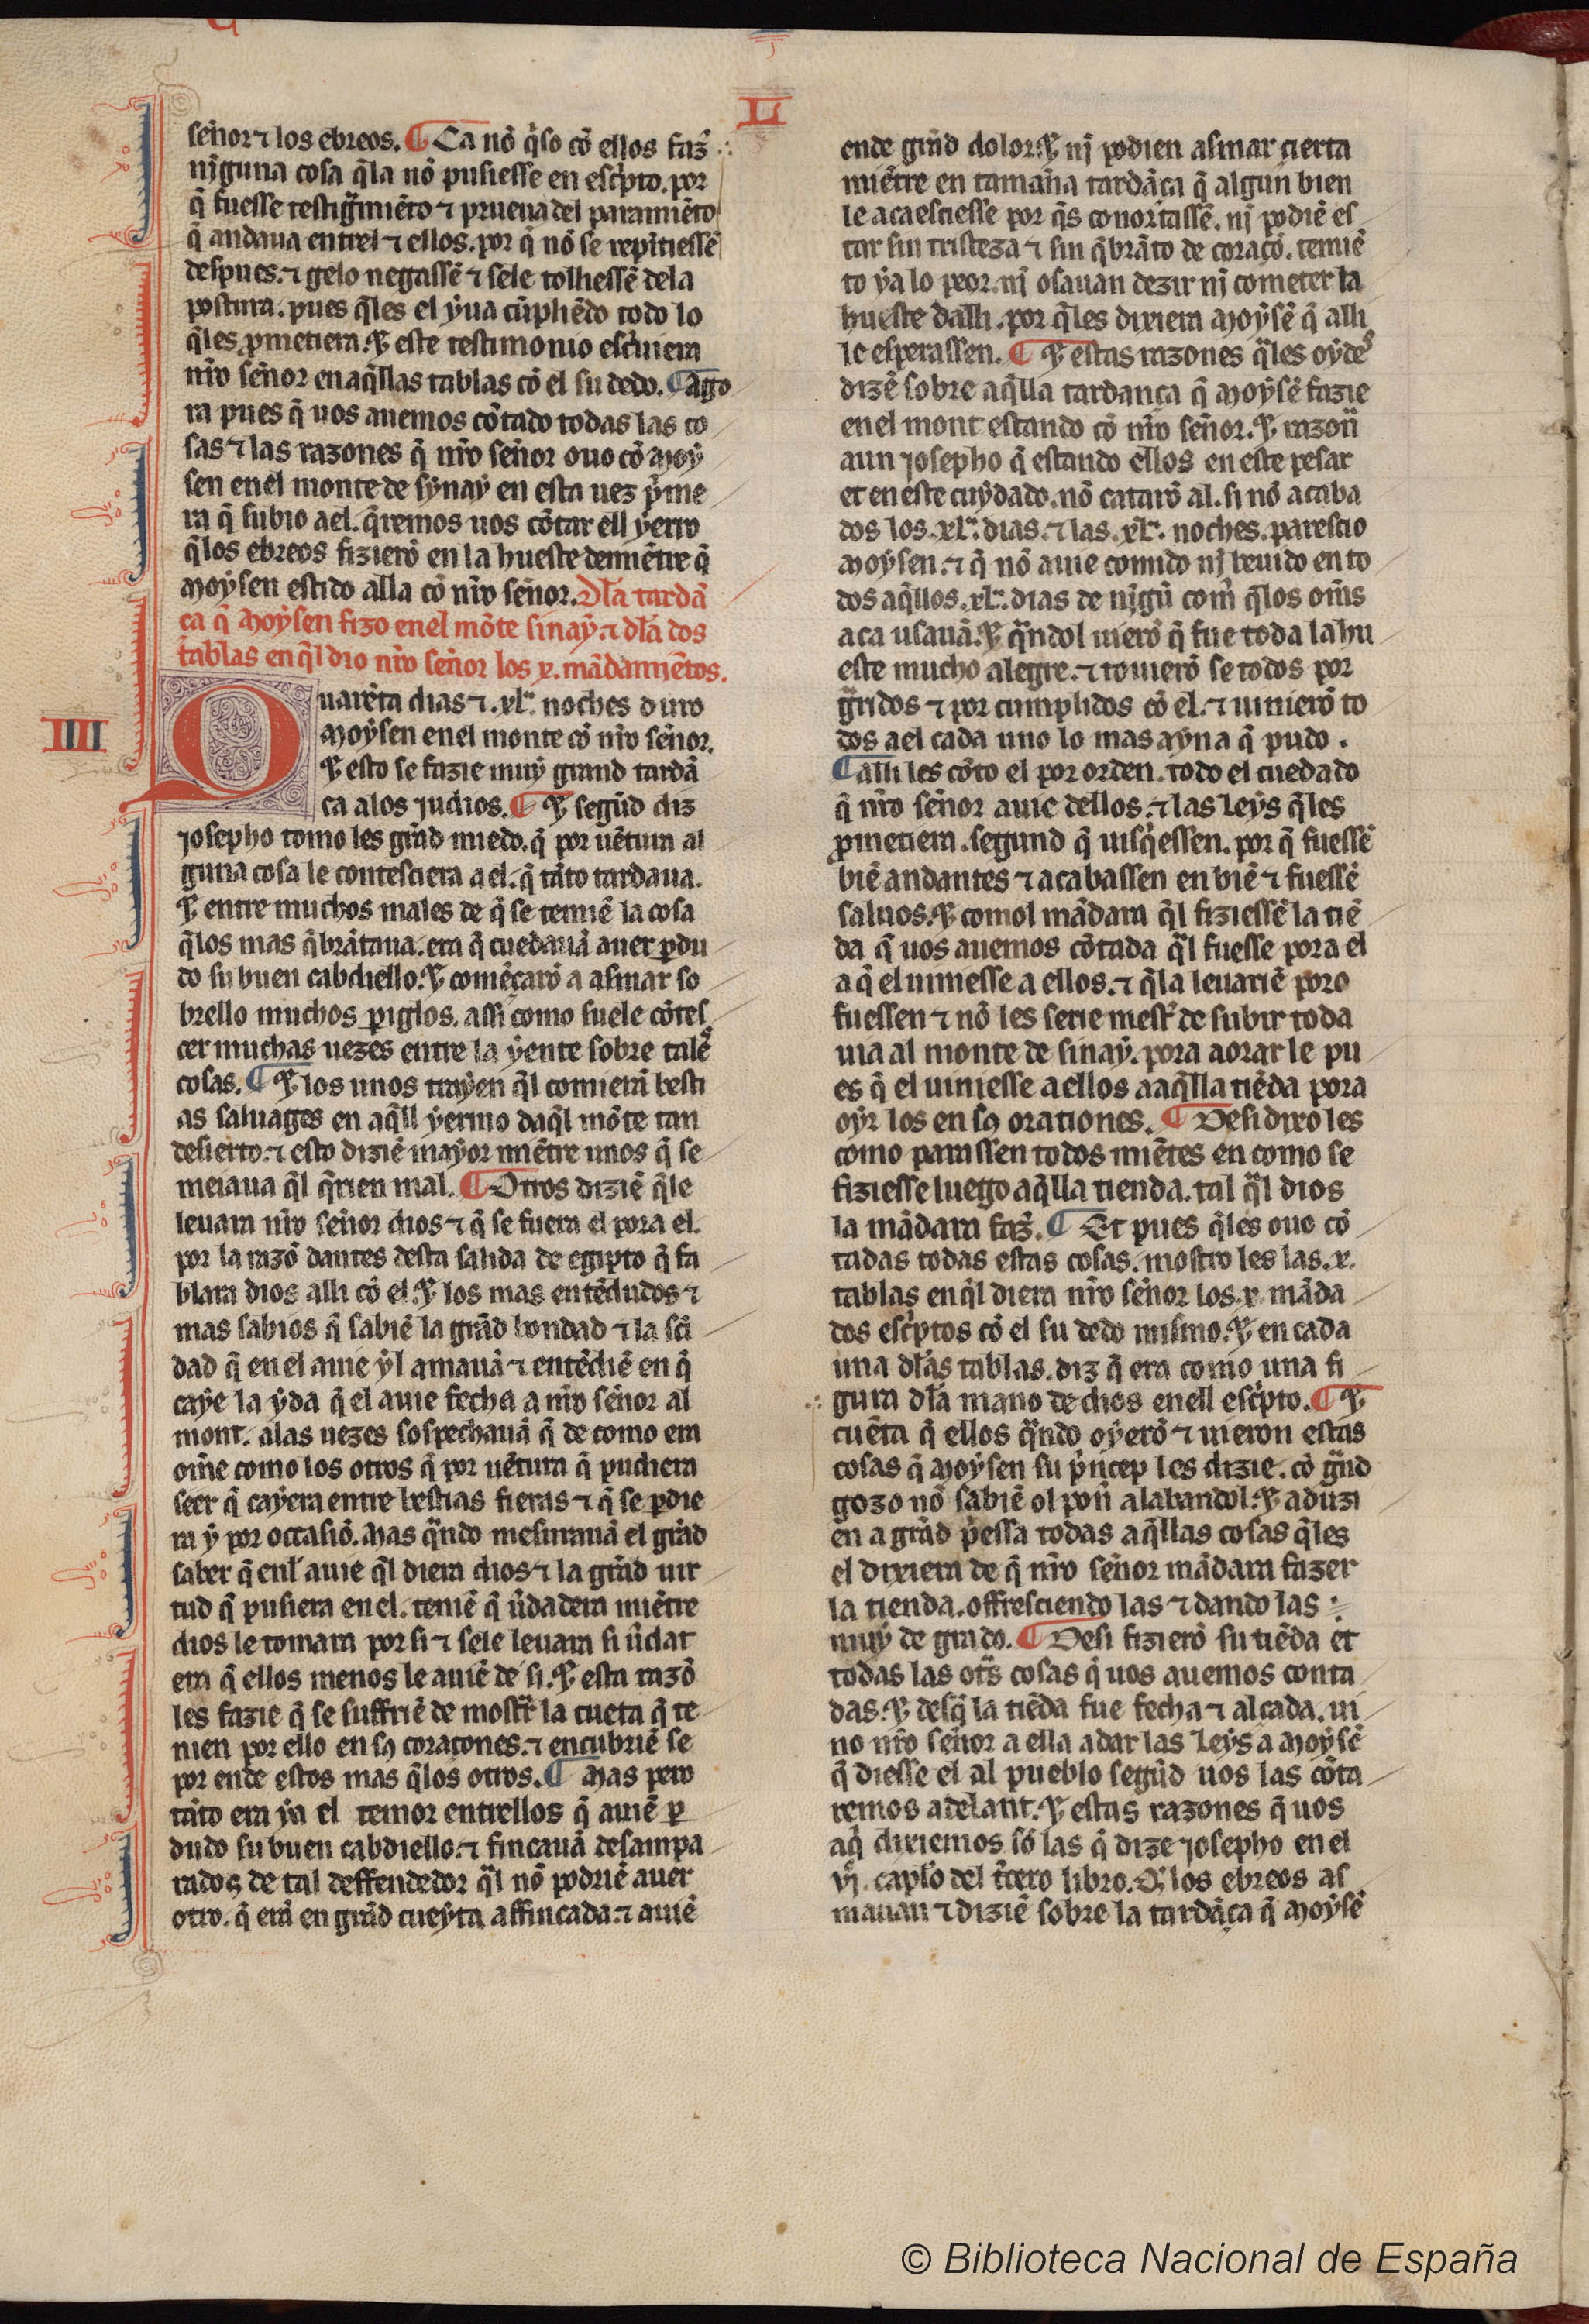 L
señor ⁊ los ebreos. ¶ Ca nõ q̃so cõ ellos faz̃
njguna cosa q̃la nõ pusiesse en esc̃pto. por
q̃ fuesse testigm̃iẽto ⁊ prueua del paramiẽto
q̃ andaua entrel ⁊ ellos. por q̃ nõ se repĩtiessẽ
despues. ⁊ gelo negassẽ ⁊ sele tolhessẽ dela
postura. pues q̃les el ẏua cũpliẽdo todo lo
q̃les ꝓmetiera. ⁊ este testimonio esc̃uiera
nr̃o señor en aq̃llas tablas cõ el su dedo. ¶ Ago
ra pues q̃ uos auemos cõtado todas las co
sas ⁊ las razones q̃ nr̃o señor ouo cõ Moẏ
sen enel monte de sẏnaẏ en esta uez p̃me
ra q̃ subio ael. q̃remos uos cõtar ell ẏerro
q̃los ebreos fizierõ en la hueste demiẽtre q̃
Moẏsen estido alla cõ nr̃o señor. Dl̃a tardã
ça q̃ Moẏsen fizo enel mõte sinaẏ. ⁊ dl̃a dos
tablas en q̃l dio nr̃o señor los .x. mãdamiẽtos.
IIII
Quarẽta dias ⁊ .xl.ª noches duro
Moẏsen enel monte cõ nr̃o señor.
⁊ esto se fazie muẏ grand tardã
ça alos judios. ¶ ⁊ segũd diz
Josepho tomo les grãd miedo. q̃ por uẽtura al
guna cosa le contesciera a el. q̃ tãto tardaua.
⁊ entre muchos males de q̃ se temiẽ la cosa
q̃los mas q̃brãtaua. era q̃ cuedauã auer ꝑdu
do su buen cabdiello. ⁊ começarõ a asmar so
brello muchos ꝑiglos. assi como suele cõtes
cer muchas uezes entre la ẏente sobre tales̃
cosas. ¶ ⁊ los unos traẏen q̃l comierã besti
as saluages en aq̃ll ẏermo daq̃l mõte tan
desierto. ⁊ esto diziẽ maẏor miẽtre unos q̃ se
meiaua q̃l q̃rien mal. ¶ Otros diziẽ q̃le
leuara nr̃o señor dios ⁊ q̃ se fuera el pora el.
por la razõ dantes desta salida de egipto q̃ fa
blara dios alli cõ el. ⁊ los mas entẽdudos ⁊
mas sabios q̃ sabiẽ la grãd bondad ⁊ la sci̇̃
dad q̃ en el auie ẏl amauã ⁊ entẽdiẽ en q̃
caẏe la ẏda q̃ el auie fecha a nr̃o señor al
mont. alas uezes sospechauã q̃ de como era
om̃e como los otros q̃ por uẽtura q̃ pudiera
seer q̃ caẏera entre bestias fieras ⁊ q̃ se ꝑdie
ra ẏ por occasiõ. Mas q̃ndo mesurauã el grãd
saber q̃ enl̃ auie q̃l diera dios ⁊ la grãd uir
tud q̃ pusiera en el. teniẽ q̃ ũdadera miẽtre
dios le tomara por si ⁊ sele leuara si ũdat
era q̃ ellos menos le auiẽ de si. ⁊ esta razõ
les fazie q̃ se suffriẽ de mostr̃ la cueta q̃ te
nien por ello en sꝯ coraçones. ⁊ encubriẽ se
por ende estos mas q̃los otros. ¶ Mas pero
tãto era ẏa el temor entrellos q̃ auiẽ ꝑ
dudo su buen cabdiello. ⁊ fincauã desampa
rados de tal deffendedor q̃l nõ podriẽ auer
otro. q̃ erã en grãd cueẏta affincada. ⁊ auiẽ
ende grãd dolor. ⁊ nj podien asmar cierta
miẽtre en tamaña tardãça q̃ algun bien
le acaesciesse por q̃s conortassẽ. nj podiẽ es
tar sin tristeza ⁊ sin q̃brãto de coraçõ. temiẽ
to ẏa lo peor. nj osauan dezir nj cometer la
hueste dalli. por q̃les dixiera Moẏsẽ q̃ alli
le esperassen. ¶ ⁊ estas razones q̃les oẏdes̃
dizẽ sobre aq̃lla tardança q̃ Moẏsẽ fazie
en el mont estando cõ nr̃o señor. ⁊ razoñ
aun Josepho q̃ estando ellos en este pesar
et en este cuẏdado. nõ catarõ al. si nõ acaba
dos los .xl.ª dias. ⁊ las .xl.ª noches. parescio
Moẏsen. ⁊ q̃ nõ auie comido nj beuido en to
dos aq̃llos .xl.ª dias de njgũ com̃ q̃los om̃s
aca usauã. ⁊ q̃ndol uierõ q̃ fue toda la hu
este mucho alegre. ⁊ touierõ se todos por
grãdos ⁊ por cumplidos cõ el. ⁊ uinierõ to
dos ael cada uno lo mas aẏna q̃ pudo.
¶ Alli les cõto el por orden. todo el cuedado
q̃ nr̃o señor auie dellos. ⁊ las leẏs q̃les
ꝓmetiera. segund q̃ uisq̃essen. por q̃ fuessẽ
biẽ andantes ⁊ acabassen en biẽ ⁊ fuessẽ
saluos. ⁊ comol mãdara q̃l fiziessẽ la tiẽ
da q̃ uos auemos cõtada q̃l fuesse pora el
a q̃ el uiniesse a ellos. ⁊ q̃la leuariẽ poro
fuessen ⁊ nõ les serie mest̃ de subir toda
uia al monte de sinaẏ. pora aorar le pu
es q̃ el uiniesse a ellos a aq̃lla tiẽda pora
oẏr los en sꝯ orationes. ¶ Desi dixo les
como parassen todos miẽtes en como se
fiziesse luego aq̃lla tienda. tal q̃l dios
la mãdara faz̃. ¶ Et pues q̃les ouo cõ
tadas todas estas cosas. mostro les las .x.
tablas en q̃l diera nr̃o señor los .x. mãda
dos esc̃ptos cõ el su dedo mismo. ⁊ en cada
una dl̃as tablas. diz q̃ era como una fi
gura dl̃a mano de dios en ell esc̃pto. ¶ ⁊
cuẽta q̃ ellos q̃ndo oẏerõ ⁊ uieron estas
cosas q̃ Moẏsen su p̃ncep les dizie. cõ grãd
gozo nõ sabiẽ ol poñ alabandol. ⁊ aduzi
en a grãd p̃essa todas aq̃llas cosas q̃les
el dixiera de q̃ nr̃o señor mãdara fazer
la tienda. offresciendo las ⁊ dando las
muẏ de grado. ¶ Desi fizierõ su tiẽda et
todas las ot̃s cosas q̃ uos auemos conta
das. ⁊ desq̃ la tiẽda fue fecha ⁊ alçada. ui
no nr̃o señor a ella a dar las leẏs a Moẏsẽ
q̃ diesse el al pueblo segũd uos las cõta
remos adelant. ⁊ estas razones q̃ uos
aq̃ dixiemos sõ las q̃ dize Josepho en el
vj. caplo̅ del t̃cero libro. Q̃ los ebreos as
mauan ⁊ diziẽ sobre la tardãça q̃ Moẏsẽ
© Biblioteca Nacional de España